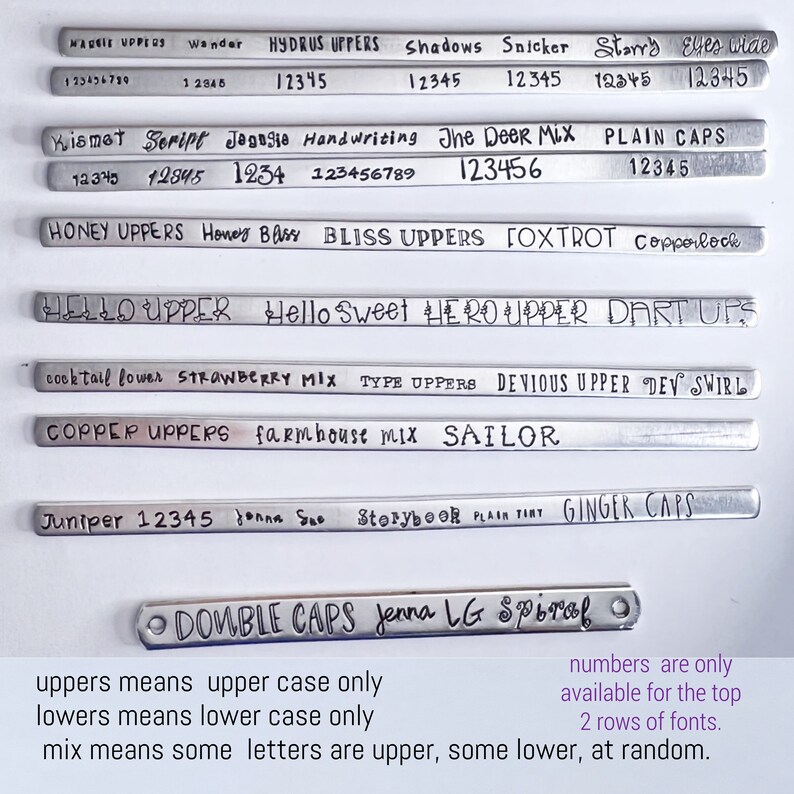 MAGGIE UPPERS Wander HYDRUS UPPERS Shadows Snicker Starry Eyes Wide
123456789 12345 12345 12345 12345 12345 12345
Kismet Script Jeaogie Handwriting The Deer Mix PLAIN CAPS
12345 12345 1234 123456789 123456 12345
HONEY UPPERS Honey Bliss BLISS UPPERS FOXTROT Copperlock
HELLO UPPER Hello Sweet HERO UPPER DART UPS
cocktail lower STRAWBERRY MIX TYPE UPPERS DEVIOUS UPPER DEV SWIRL
COPPER UPPERS farmhouse mix SAILOR
Juniper 12345 Jenna Sue Storybook PLAIN TINY GINGER CAPS
DOUBLE CAPS Jenna LG Spiral
uppers means upper case only
lowers means lower case only
mix means some letters are upper, some lower, at random.
numbers are only
available for the top
2 rows of fonts.